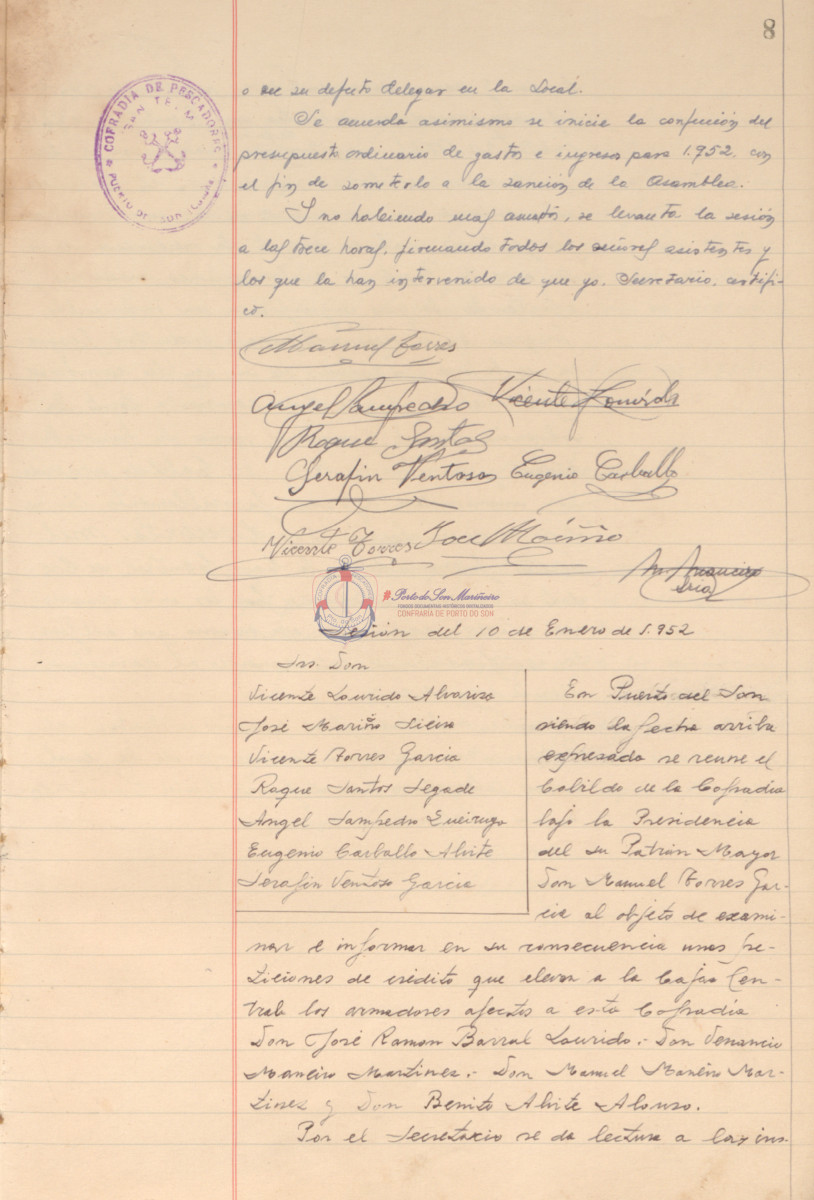 8
COFRADIA DE PESCADORES
SAN TELMO
PUERTO DEL SON
o en su defecto delegar en la Local.
Se acuerda asimismo se inicie la confección del
presupuesto ordinario de gastos e ingresos para 1.952, con
el fin de someterlo a la sanción de la Asamblea.
Y no habiendo mas asuntos, se levanta la sesión
a las trece horas, firmando todos los señores asistentes y
los que la han intervenido de que yo, Secretario, certifi-
co.
Manuel Torres
Angel Sampedro Vicente Lourido
Roque Santos
Serafin Ventoso Eugenio Carballo
Vicente Torres Jose Mariño
Srio
#Porto do Son Mariñeiro
FONDOS DOCUMENTAIS HISTÓRICOS DIXITALIZADOS
CONFRARÍA DE PORTO DO SON
Sesión del 10 de Enero de 1.952
Srs. Don
Vicente Lourido Alvariza
José Mariño Sieira
Vicente Torres Garcia
Roque Santos Segade
Angel Sampedro Queiruga
Eugenio Carballo Ahite
Serafin Ventoso Garcia
En Puerto del Son
siendo la fecha arriba
expresada se reune el
Cabildo de la Cofradia
bajo la Presidencia
del su Patrón Mayor
Don Manuel Torres Gar-
cia al objeto de exami-
nar e informar en su consecuencia unas pe-
ticiones de crédito que elevan a la Caja Cen-
tral los armadores afectos a esta Cofradia
Don José Ramon Barral Lourido.- Don Venancio
Maneiro Martinez.- Don Manuel Maneiro Mar-
tinez y Don Benito Ahite Alonso.
Por el Secretario se da lectura a las ins-